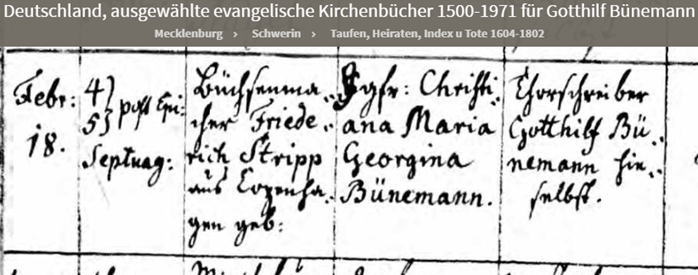 Deutschland, ausgewählte evangelische Kirchenbücher 1500-1971 für Gotthilf Bünemann
Mecklenburg › Schwerin › Taufen, Heiraten, Index u Tote 1604-1802
Febr:
18.
4}
5} post Epi:
Septuag:
Büchsenma
cher Friede
rich Stripp
aus Copenha
gen geb:
Jgfr: Christi
ana Maria
Georgina
Bünemann.
Thorschreiber
Gotthilf Bü
nemann hie
selbst.